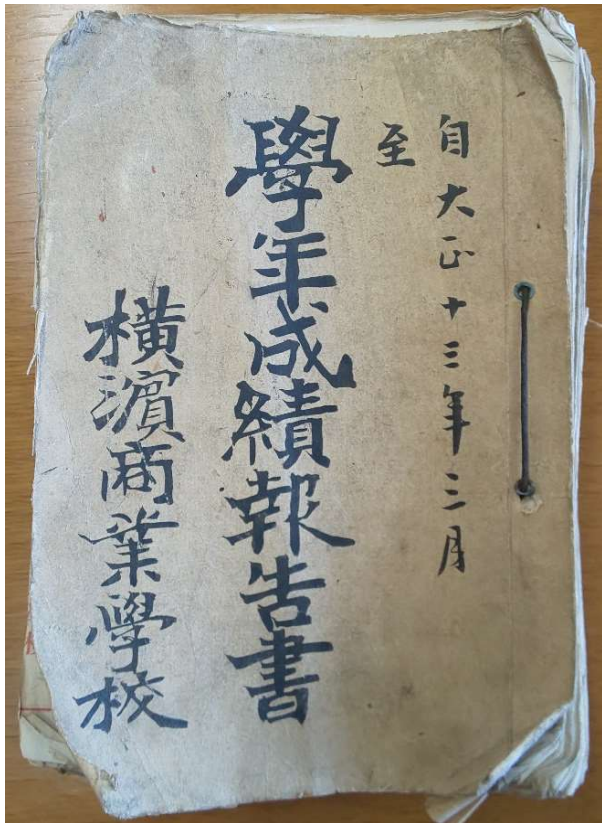 自大正十三年三月
至
學年成績報告書
横濱商業學校